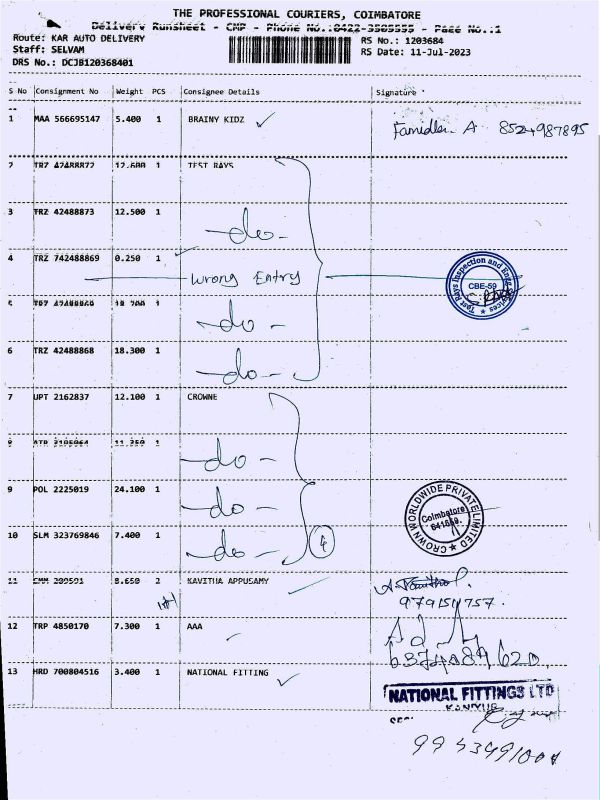 THE PROFESSIONAL COURIERS, COIMBATORE
Delivery Runsheet - CMP - Phone No.:0422-3509555 - Page No.:1
Route: KAR AUTO DELIVERY RS No.: 1203684
Staff: SELVAM RS Date: 11-Jul-2023
DRS No.: DCJB120368401
S No Consignment No Weight PCS Consignee Details Signature
1 MAA 566695147 5.400 1 BRAINY KIDZ
A 8524987895
2 TRZ 42488872 12.600 1 TEST RAYS
3 TRZ 42488873 12.500 1
-do-
4 TRZ 742488869 0.250 1
Wrong Entry
Test Rays Inspection and Engg Services
CBE-59
5 18.700 1
-do-
6 TRZ 42488868 18.300 1
-do-
7 UPT 2162837 12.100 1 CROWNE
8 11.250 1
-do-
9 POL 2225019 24.100 1
-do-
CROWN WORLDWIDE PRIVATE LIMITED
Coimbatore
10 SLM 323769846 7.400 1
-do- 4
11 8.650 2 KAVITHA APPUSAMY
12 TRP 4850170 7.300 1 AAA
13 HRD 700804516 3.400 1 NATIONAL FITTING
NATIONAL FITTINGS LTD